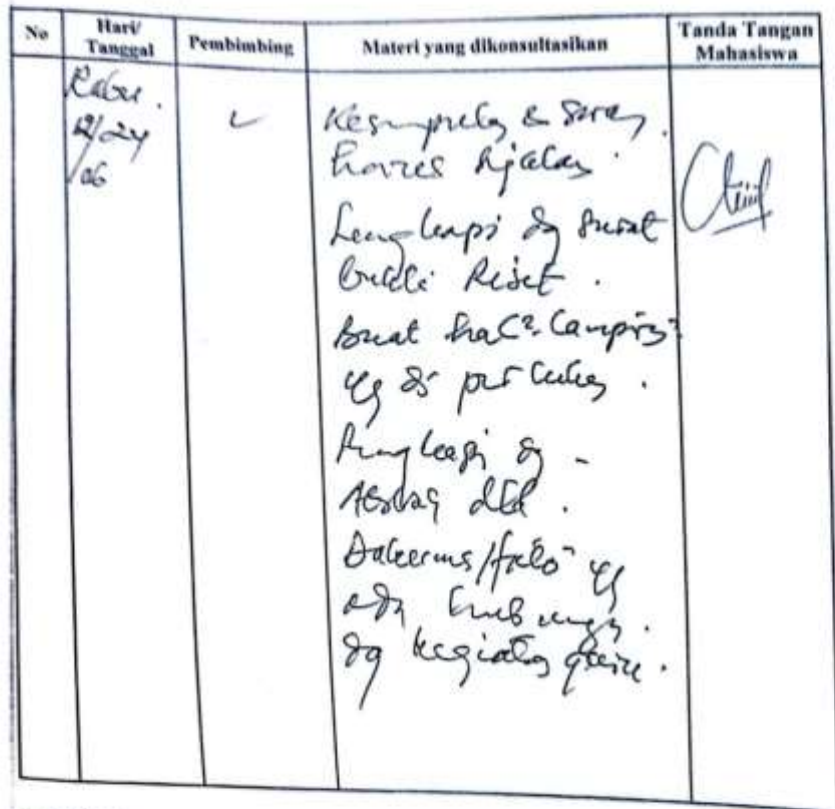 No Hari/ Tanggal Pembimbing Materi yang dikonsultasikan Tanda Tangan Mahasiswa
Rabu.
12/24
/06
Kesimpulan & Saran.
harus
Lengkapi dg surat
bukti Riset.
Buat hal² Lampiran²
yg di perlukan.
Lengkapi dg -
dll.
/foto² yg
ada hubungan
dg kegiatan